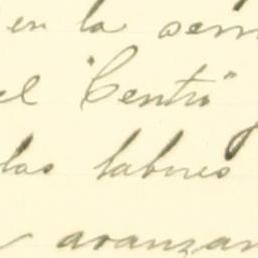 en la sem
el "Centro"
las labores
avanzan